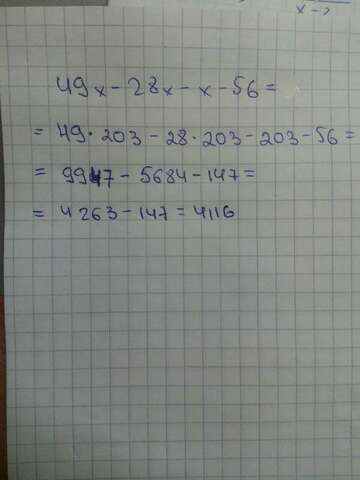 x-2
49x-28x-x-56=
=49·203-28·203-203-56=
=9947-5684-147=
=4263-147=4116